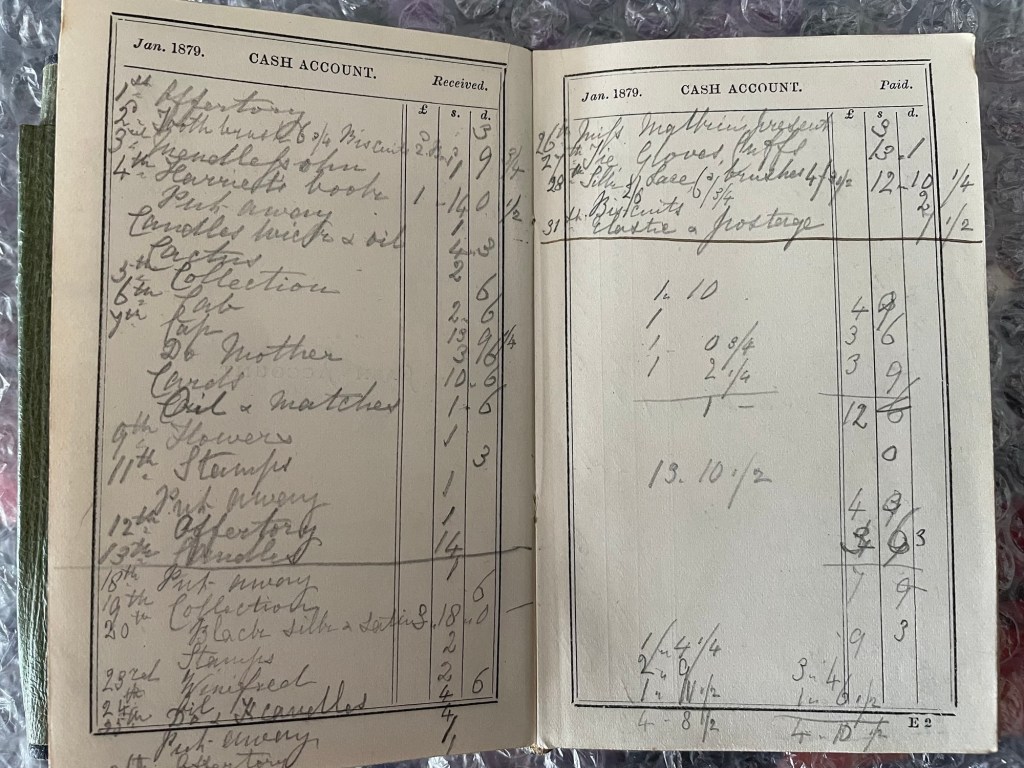 Jan. 1879. CASH ACCOUNT. Received.
£ s. d.
1st Offertory 3
2 Tooth brush 6 3/4 Biscuits
3rd Mendelssohn 1 9 3/4
4th Harriett's book 1 - 14 0 1/2
Put away 1
Candles wick & oil 4 - 3
Cactus 2
5th Collection 6
6th Cab 2 - 6
7th Cap 13 9 1/4
Do Mother 3 6
Cards 10 - 6
Oil & matches 1 - 6
9th Flowers 1
11th Stamps 3
Put away 1
12th Offertory 1
13th Candles 14
18th Put away 1
19th Collection 6
20th Black silk & satin 18 - 0
Stamps 2
23rd Winifred 2 6
24th Oil 4
Do & candles 4
Put away 1
Offertory 1
Jan. 1879. CASH ACCOUNT. Paid.
£ s. d.
26th Miss present 3
27th Gloves, Muffs 13 - 1
28th Silk lace brushes 12 - 10 1/4
Biscuits 2
31st Elastic & postage 7 1/2
1 - 10
1 4 9
1 - 0 3/4 3 6
1 2 1/4 3 9
1 - 12 6
0
13 - 10 1/2
4 9
3
7 9
9 3
1 " 4 1/4
2 " 0 3 - 4
1 " 11 1/2
4 - 8 1/2 4 - 10 1/2
E 2